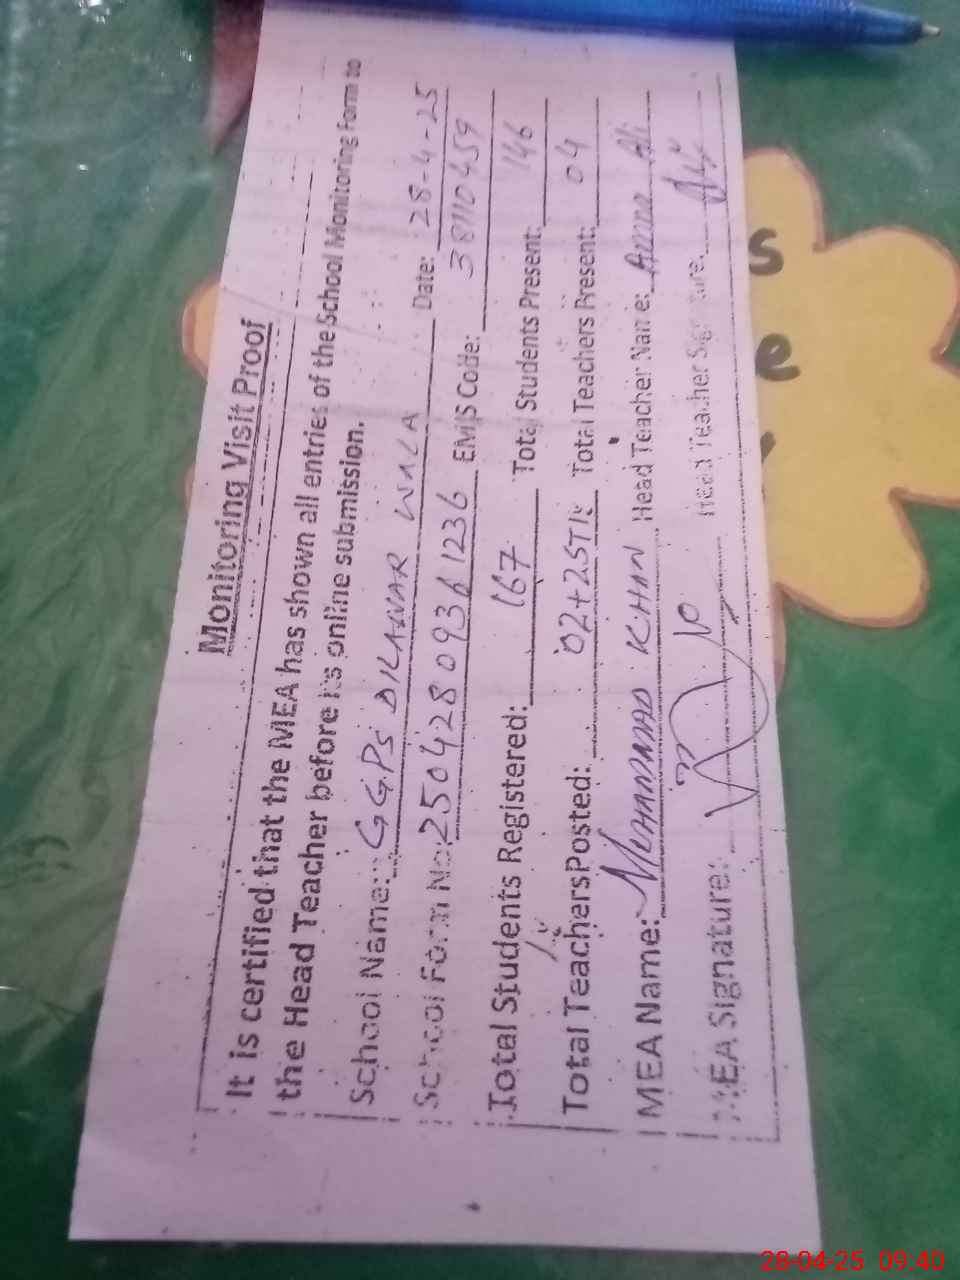 Monitoring Visit Proof
It is certified that the MEA has shown all entries of the School Monitoring Form to
the Head Teacher before its online submission.
School Name: GGPS DILAWAR WALA Date: 28-4-25
School Form No: 25042809361236 EMIS Code: 38110459
Total Students Registered: 167 Total Students Present: 146
Total Teachers Posted: 02+2STI Total Teachers Present: 04
MEA Name: Muhammad KHAN Head Teacher Name: Amna Ali
MEA Signature: Head Teacher Signature.
s
e
28-04-25 09:40